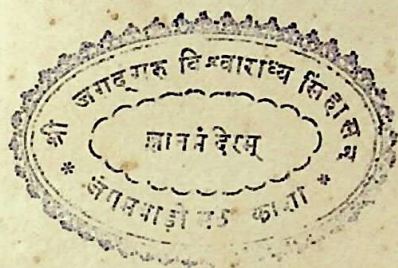 श्री जगद्गुरु विश्वाराध्य सिंहासन
ज्ञानमंदिरम्
* जंगमवाड़ी मठ *